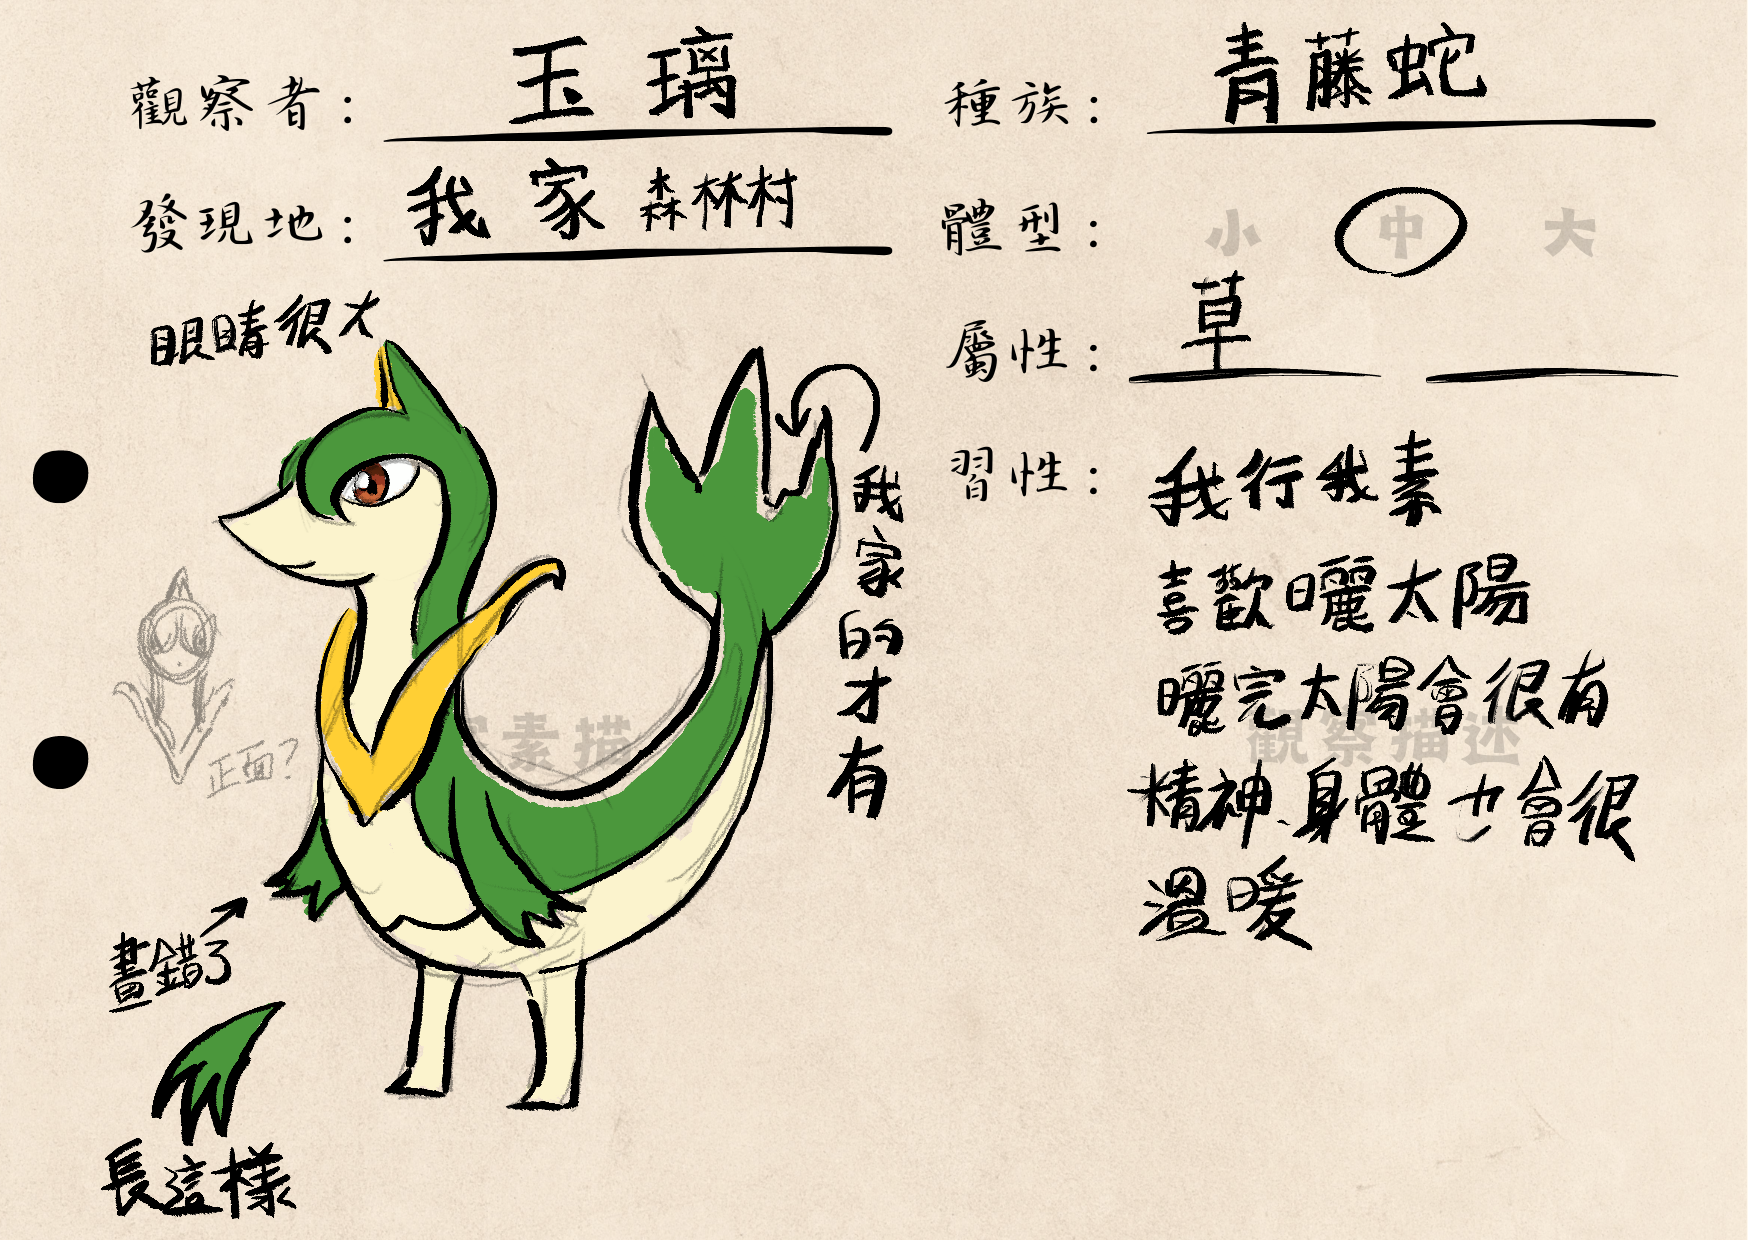 觀察者： 玉璃
種族： 青藤蛇
發現地： 我家 森林村
體型： 小 中 大
屬性： 草
眼睛很大
我家的才有
正面？
畫錯了
長這樣
素描
習性： 我行我素
喜歡曬太陽
曬完太陽會很有
精神、身體也會很
溫暖
觀察描述